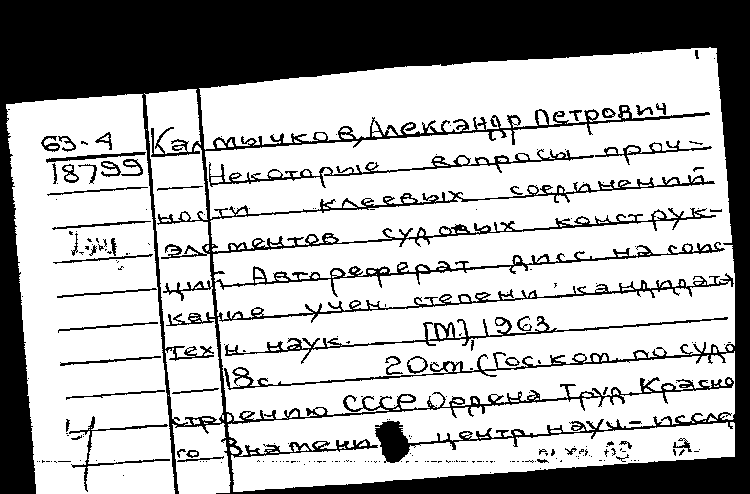 63-4 Калмычков, Александр Петрович
18799 Некоторые вопросы проч-
ности клеевых соединений
элементов судовых конструк-
ций. Автореферат дисс. на соис-
кание учен. степени кандидата
техн. наук. [М.], 1963.
18 с. 20 см. (Гос. ком. по судо
строению СССР. Ордена Труд. Красно
го Знамени центр. науч.-исслед
63